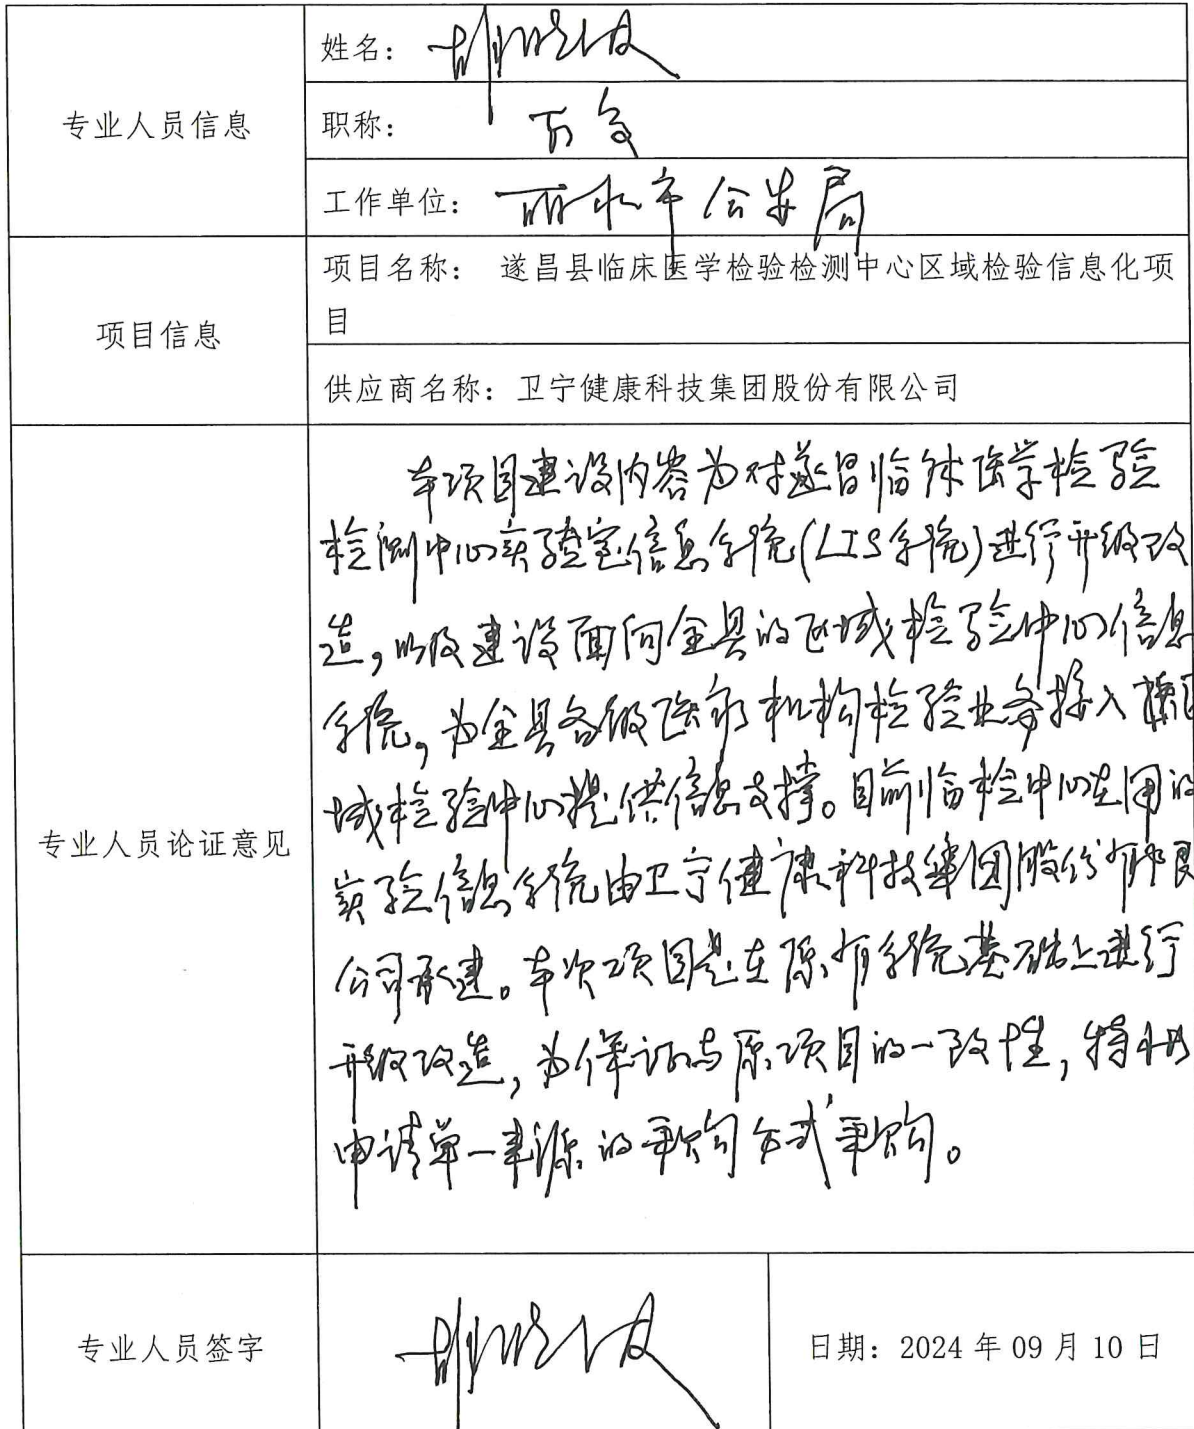 专业人员信息
姓名：胡晓波
职称：高
工作单位：丽水市公安局
项目信息
项目名称： 遂昌县临床医学检验检测中心区域检验信息化项
目
供应商名称：卫宁健康科技集团股份有限公司
专业人员论证意见
本项目建设内容为对遂昌临床医学检验
检测中心实验室信息系统(LIS系统)进行升级改
造，以及建设面向全县的区域检验中心信息
系统，为全县各级医疗机构检验业务接入区
域检验中心提供信息支撑。目前临检中心在用的
实验信息系统由卫宁健康科技集团股份有限
公司承建。本次项目是在原有系统基础上进行
升级改造，为保证与原项目的一致性，特
申请单一来源的采购方式采购。
专业人员签字
胡晓波
日期：2024 年 09 月 10 日